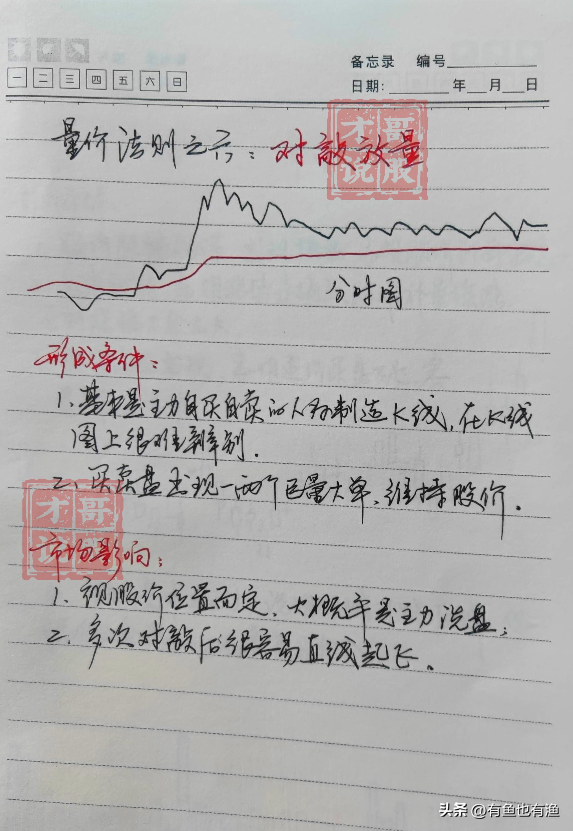 备忘录 编号
一 二 三 四 五 六 日
日期: 年 月 日
量价法则之六:对敲放量
才哥说股
分时图
形成条件:
1、基本是主力自买自卖的人为制造K线,在K线
图上很难辨别.
2、买卖盘出现一两个巨量大单、维持股价.
才哥说股
市场影响:
1、视股价位置而定、大概率是主力洗盘;
2、多次对敲后很容易直线起飞.
头条 @有鱼也有渔